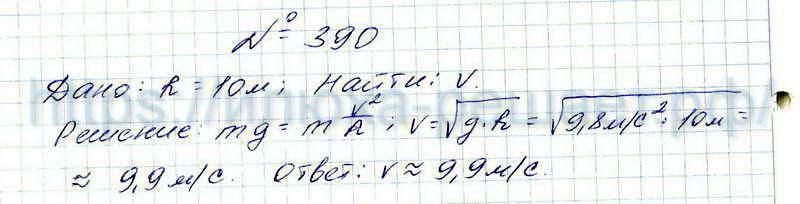 № 390
Дано: R = 10м; Найти: v.
Решение: mg = m v²/R; v = √g·R = √9,8м/с²·10м =
≈ 9,9м/с. Ответ: v ≈ 9,9м/с.